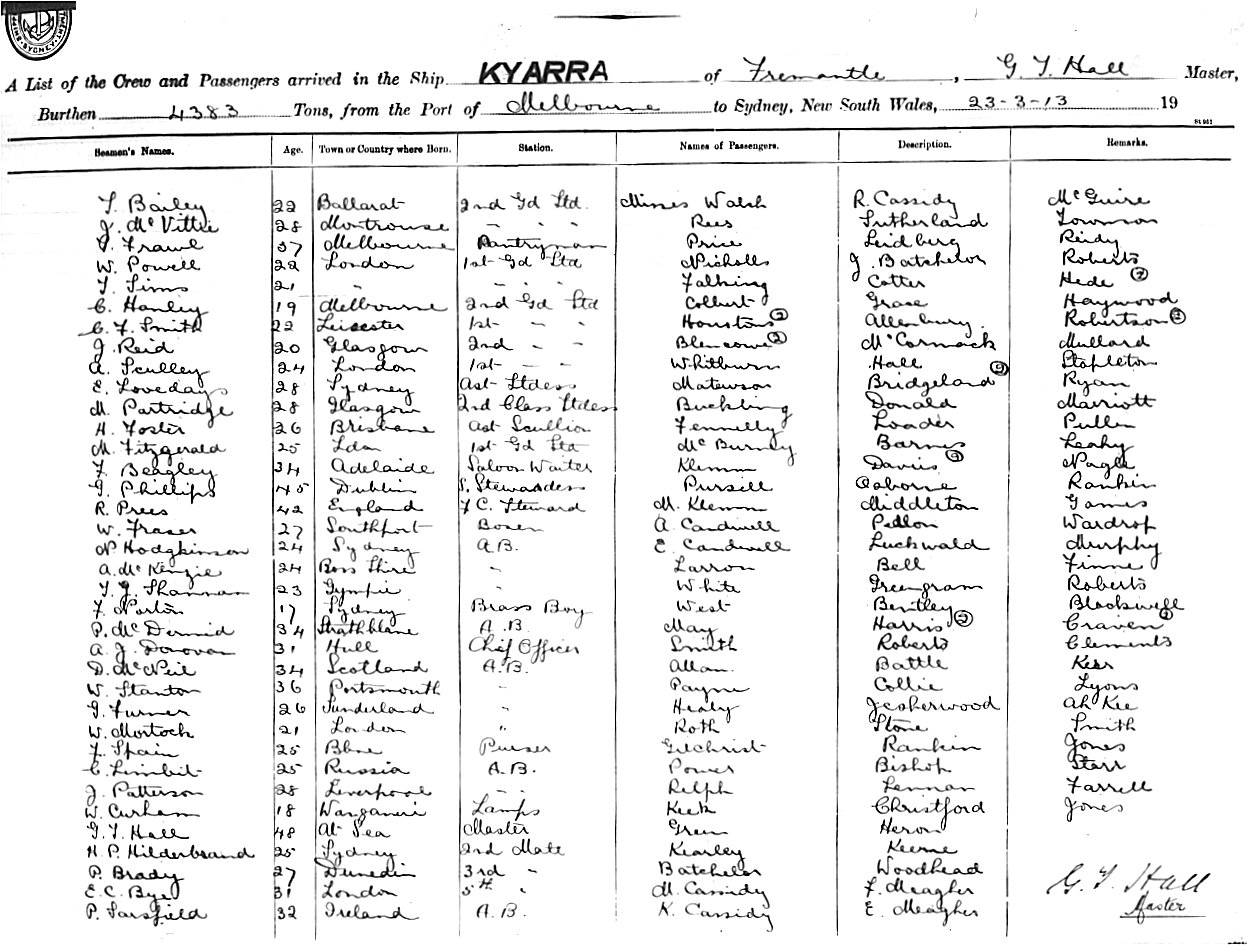 SYDNEY
A List of the Crew and Passengers arrived in the Ship KYARRA of Fremantle, G. T. Hall Master,
Burthen 4383 Tons, from the Port of Melbourne to Sydney, New South Wales, 23-3-13 19
St 951
Seamen's Names. Age. Town or Country where Born. Station. Names of Passengers. Description. Remarks.
T. Bailey 22 Ballarat 2nd Gd Std. Misses Walsh R. Cassidy McGuire
J. McVittie 28 Montrouse " " " Rees Sutherland Townson
Frawl 37 Melbourne Pantryman Price Leidberg Reidy
W. Powell 22 London 1st Gd Std Nicholls J. Batchelor Roberts
T. Sims 21 " " " " Falking Cotter Hede (2)
C. Hanley 19 Melbourne 2nd Gd Std Colbert Grase Haywood
C. F. Smith 22 Leicester 1st - - Houstons (2) Allenbury. Robertson (2)
J. Reid 20 Glasgow 2nd - - Blencowe (2) McCormack Mullard
A. Sculley 24 London 1st - - Whitburn Hall Stapleton
E. Lovedays 28 Sydney Ast Stdess Matewson Bridgeland (2) Ryan
M. Partridge 28 Glasgow 2nd Class Stdess Buckling Donald Marriott
H. Foster 26 Brisbane Ast Scullion Fennelly Loader Pullen
M. Fitzgerald 25 Ldon 1st Gd Std McBurney Barnes Leahy
F. Beagley 34 Adelaide Saloon Waiter Klemm Davies (2) Nagle
G. Phillips 45 Dublin S. Stewardess Pursill Osborne Rankin
R. Prees 42 England F. C. Steward M. Klemm Middleton Games
W. Fraser 27 Southport Bosen A. Candwell Pedlon Wardrop
N. Hodgkinson 24 Sydney A.B. E. Candwell Luckwald Murphy
A. McKenzie 24 Ross Shire " Larron Bell Finne
T. J. Shannan 23 Gympie " White Greengram Roberts
F. Norton 17 Sydney Brass Boy West Bentley Blackwell
P. McDermid 34 Strathblane A.B. May Harris (2) Craven (2)
A. J. Donovan 31 Hull Chief Officer Smith Roberts Clements
D. McNeil 34 Scotland A.B. Allan. Battle Keer
W. Stanton 36 Portsmouth " Payne Collie Lyons
G. Turner 26 Sunderland " Healy Jesherwood Ah Kee
W. Mortock 21 London " Roth Stone Smith
F. Spain 25 Bbne Purser Gilchrist Rankin Jones
C. Limbit 25 Russia A.B. Power Bishop Starr
J. Patterson 28 Liverpool - - Relph Lennan Farrell
W. Curham 18 Wanganui Lamps Keek Christford Jones
G. T. Hall 48 At Sea Master Green Heron
H. P. Hilderbrand 25 Sydney 2nd Mate Kearley Keerne
P. Brady 27 Dunedin 3rd " Batchelor Woodhead
E. C. Bye 31 London 5th " M. Cassidy F. Meagher G. T. Hall
P. Sarsfield 32 Ireland A.B. K. Cassidy E. Meagher Master